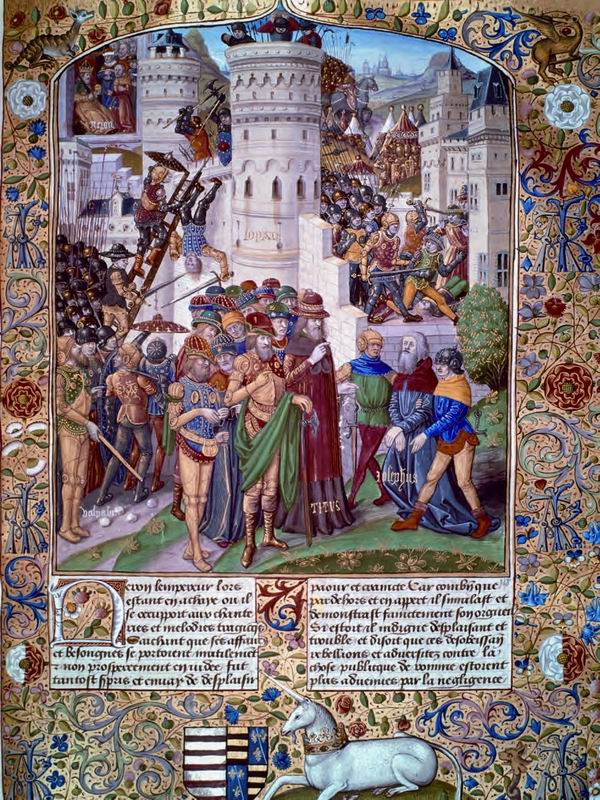 Neron
TITUS
Iosephus
Neron lempereur lors
estant en achaye ou il
se occupoit aux chante
ries et melodies
Sachant que ses
et besongnes se portoient inutilement
non prosperement en iudee fut
tantost spris et enuay de desplaisir
paour et crainte Car combiē que
par dehors et en appert il simulast et
demonstrast faintement son orgueil
Si estoit il indigne desplaisant et
trouble et disoit que ces desobeissan
rebellions et aduersitez contre la
chose publique de romme estoient
plus aduenues par la negligence